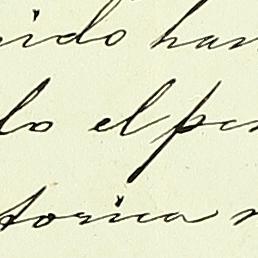 ido han
lo el per
torica n